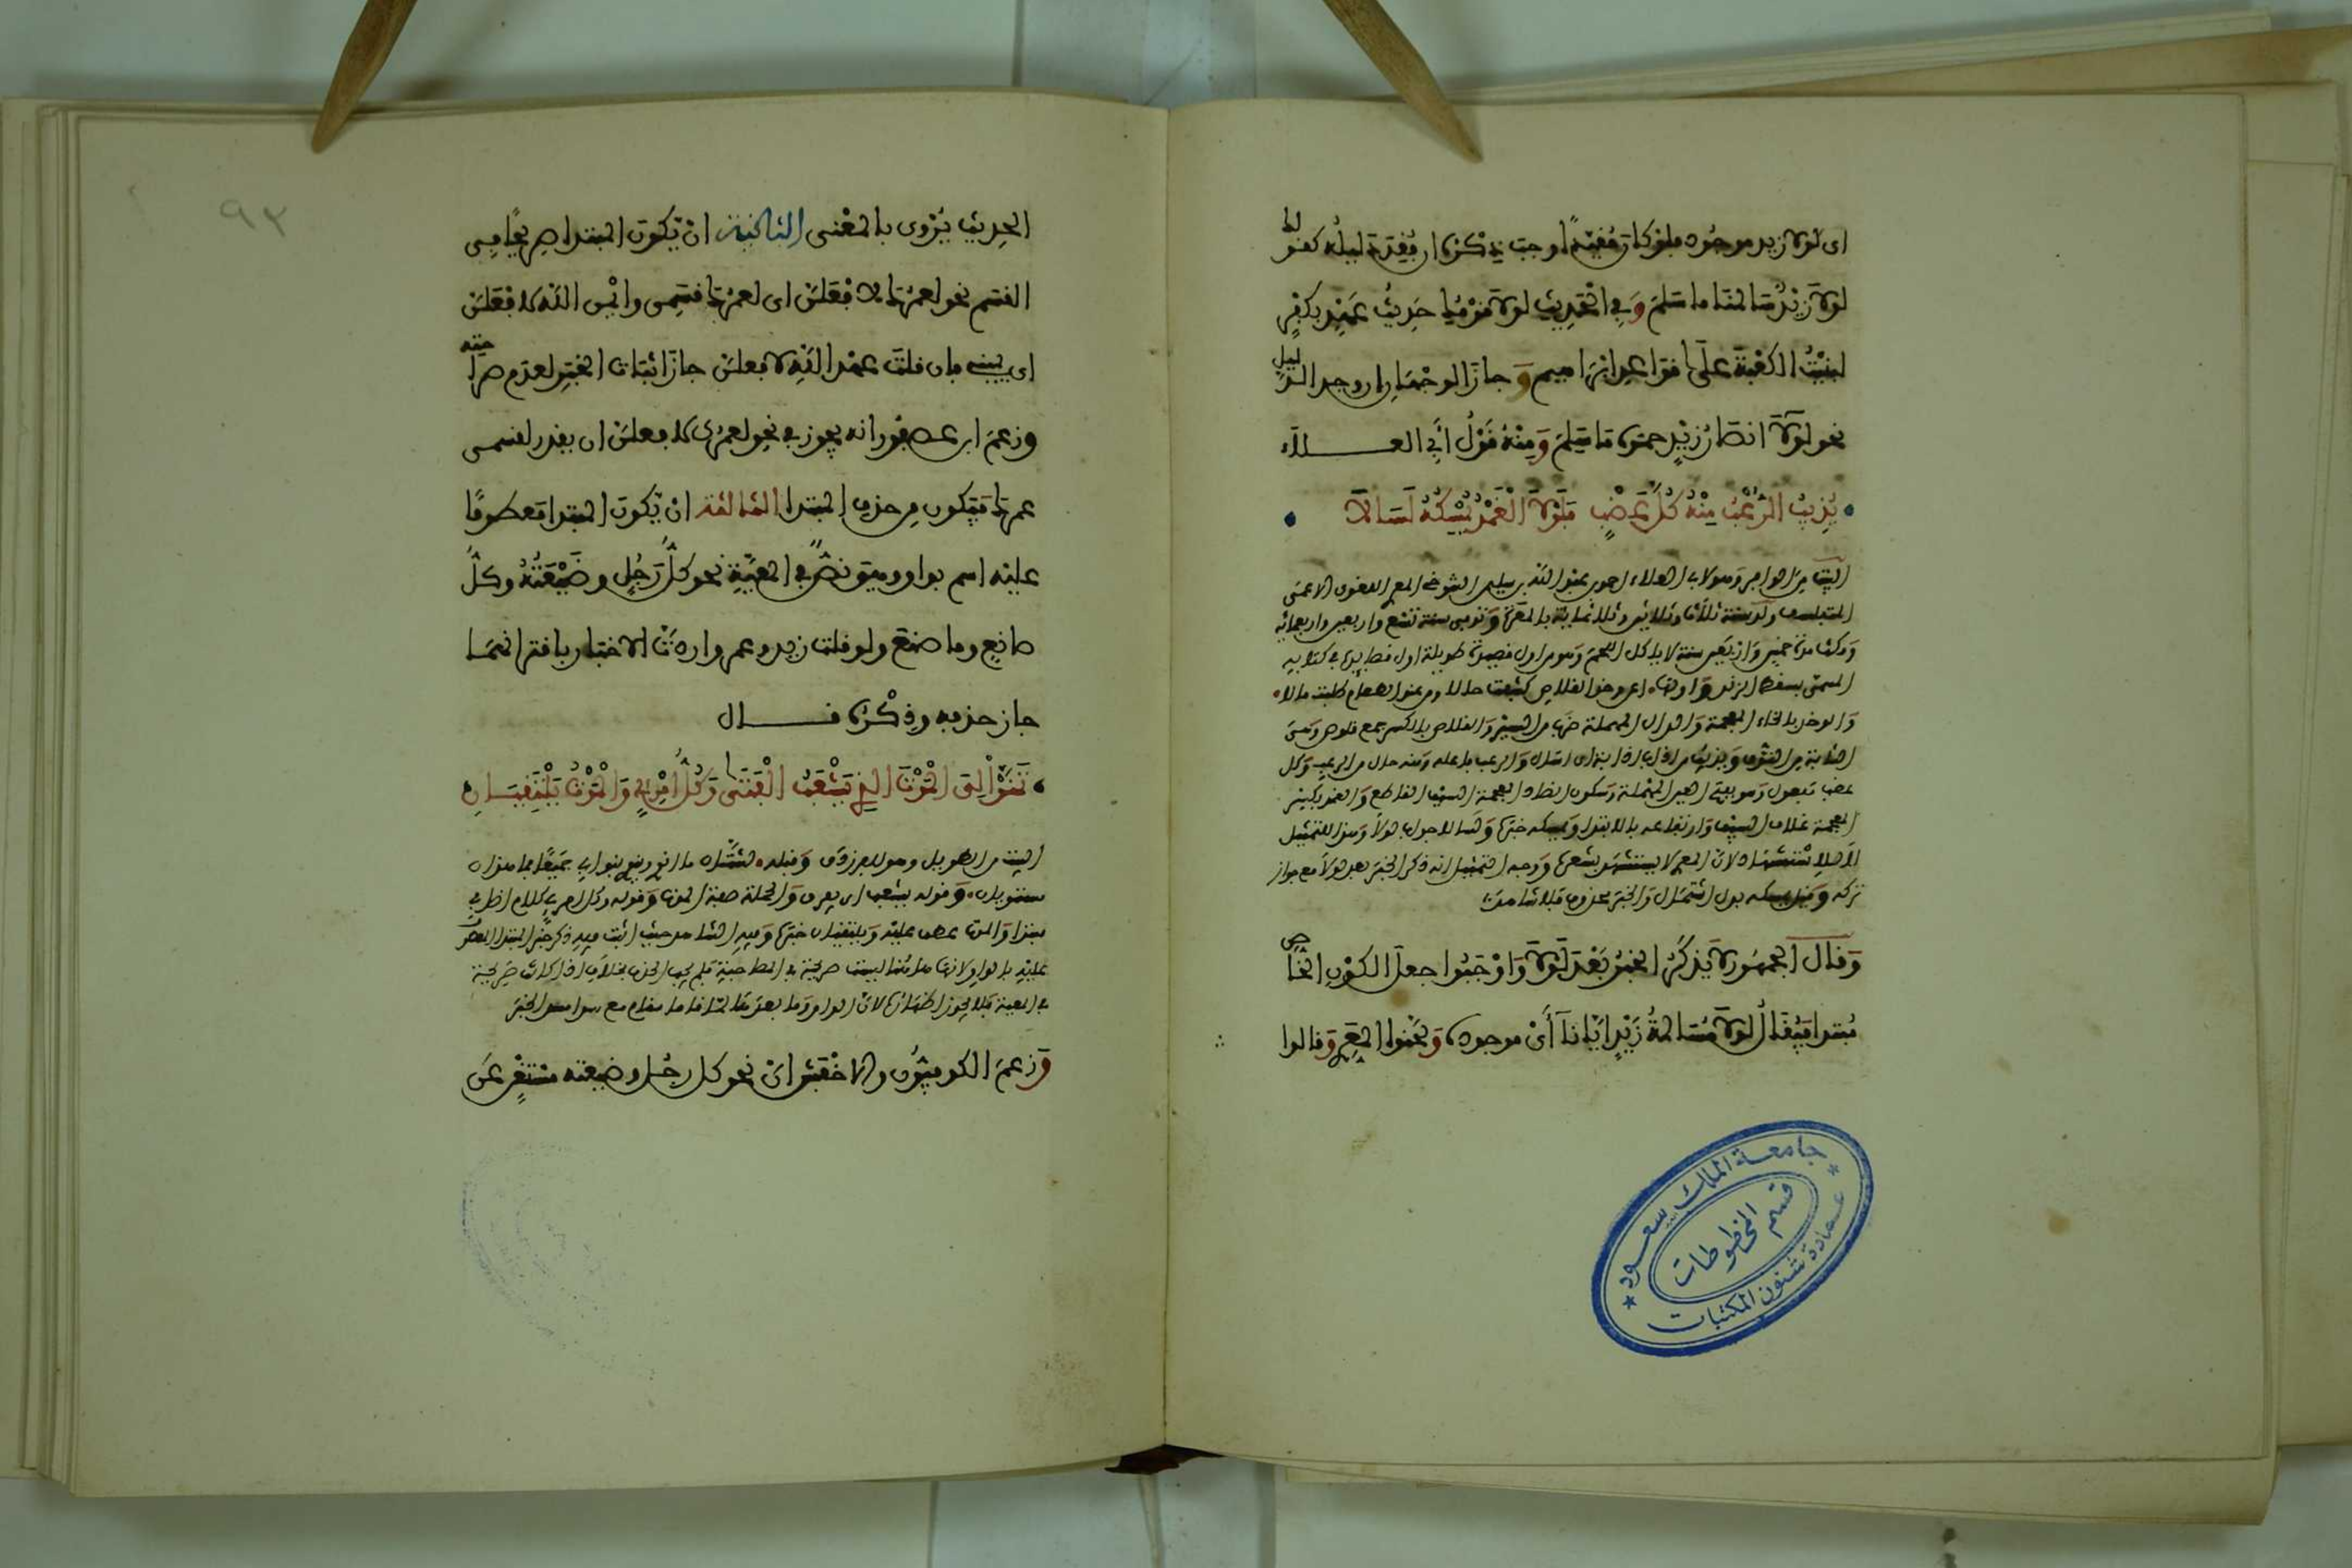 اى لولا زيد موجود فلو كان مقيدا وجب ذكره ان فقد دليله كقولك
لولا زيد سالمنا ما سلم وفي الحديث لولا قومك حديث عهد بكفر
لبنيت الكعبة على قواعد ابراهيم وجاز الوجهان ان وجد الدليل
نحو لولا انصار زيد حموه ما سلم ومنه قول أبي العلاء
يذيب الرعب منه كل عضب فلولا الغمد يمسكه لسالا
البيت من الوافر وهو لابي العلاء احمد بن عبد الله بن سليمن التنوخي المعري اللغوي الاعمى
ولد سنة ثلاث وستين وثلاثمائة بالمعرة وتوفي سنة تسع واربعين واربعمائة
ومكث مدة خمس واربعين سنة لا ياكل اللحم وهو من اول قصيدة طويلة اول قصائده في كتابه
المسمى بسقط الزند واولها اعن وخد القلاص كشفت حالا ومن عند الظلام طلبت مالا
والوخد بالخاء المعجمة والدال المهملة ضرب من السير والقلاص بالكسر جمع قلوص وهي
الشابة من النوق ويذيب من اذاب اذابة اى اسال والرعب فاعله ومنه حال من الرعب وكل
عضب مفعول وهو بفتح العين المهملة وسكون الضاد المعجمة السيف القاطع والغمد بكسر
المعجمة غلاف السيف وارتفاعه بالابتدا ويمسكه خبره ولسالا جواب لولا وهذا للتمثيل
لا للاستشهاد لان المعري لا يستشهد بشعره ووجه التمثيل انه ذكر الخبر بعد لولا مع جواز
تركه وقيل يمسكه بدل اشتمال والخبر محذوف فلا شاهد
وقال الجمهور لا يذكر الخبر بعد لولا واوجبوا جعل الكون الخاص
مبتدا فيقال لولا مسالمة زيد ايانا أي موجودة ولحنوا المعري وقالوا
جامعة الملك سعود
قسم المخطوطات
عمادة شئون المكتبات
٩٢
الحديث يروى بالمعنى الثانية ان يكون المبتدا صريحا في
القسم نحو لعمرك لافعلن اى لعمرك قسمي وايمن الله لافعلن
اى يميني فان قلت عهد الله لافعلن جاز اثبات الخبر لعدم صراحته
وزعم ابن عصفور انه يجوز في نحو لعمرك لافعلن ان يقدر لقسمي
عمرك فيكون من حذف المبتدا الثالثة ان يكون المبتدا معطوفا
عليه اسم بواو وهي نص في المعية نحو كل رجل وضيعته وكل
صانع وما صنع ولو قلت زيد وعمرو واردت الاخبار باقترانهما
جاز حذفه وذكره قال
تمنوا لي الموت الذي يشعب الفتى وكل امرئ والموت يلتقيان
البيت من الطويل وهو للفرزدق وقبله لشتان ما انوي وينوي بنو ابي جميعا فما هذان
مستويان وقوله يشعب اى يفرق والجملة صفة الموت وقوله وكل امرئ كلام اضافي
مبتدا والموت عطف عليه ويلتقيان خبره وفيه الشاهد حيث اثبت فيه ذكر خبر المبتدا المعطوف
عليه بالواو لانها هنا ليست صريحة في المصاحبة فلم يجب الحذف بخلاف اذا كانت صريحة
في المعية فلا يجوز اظهاره لان الواو وما بعدها لما قاما مقام مع سدا مسد الخبر
وزعم الكوفيون والاخفش ان نحو كل رجل وضيعته مستغن عن